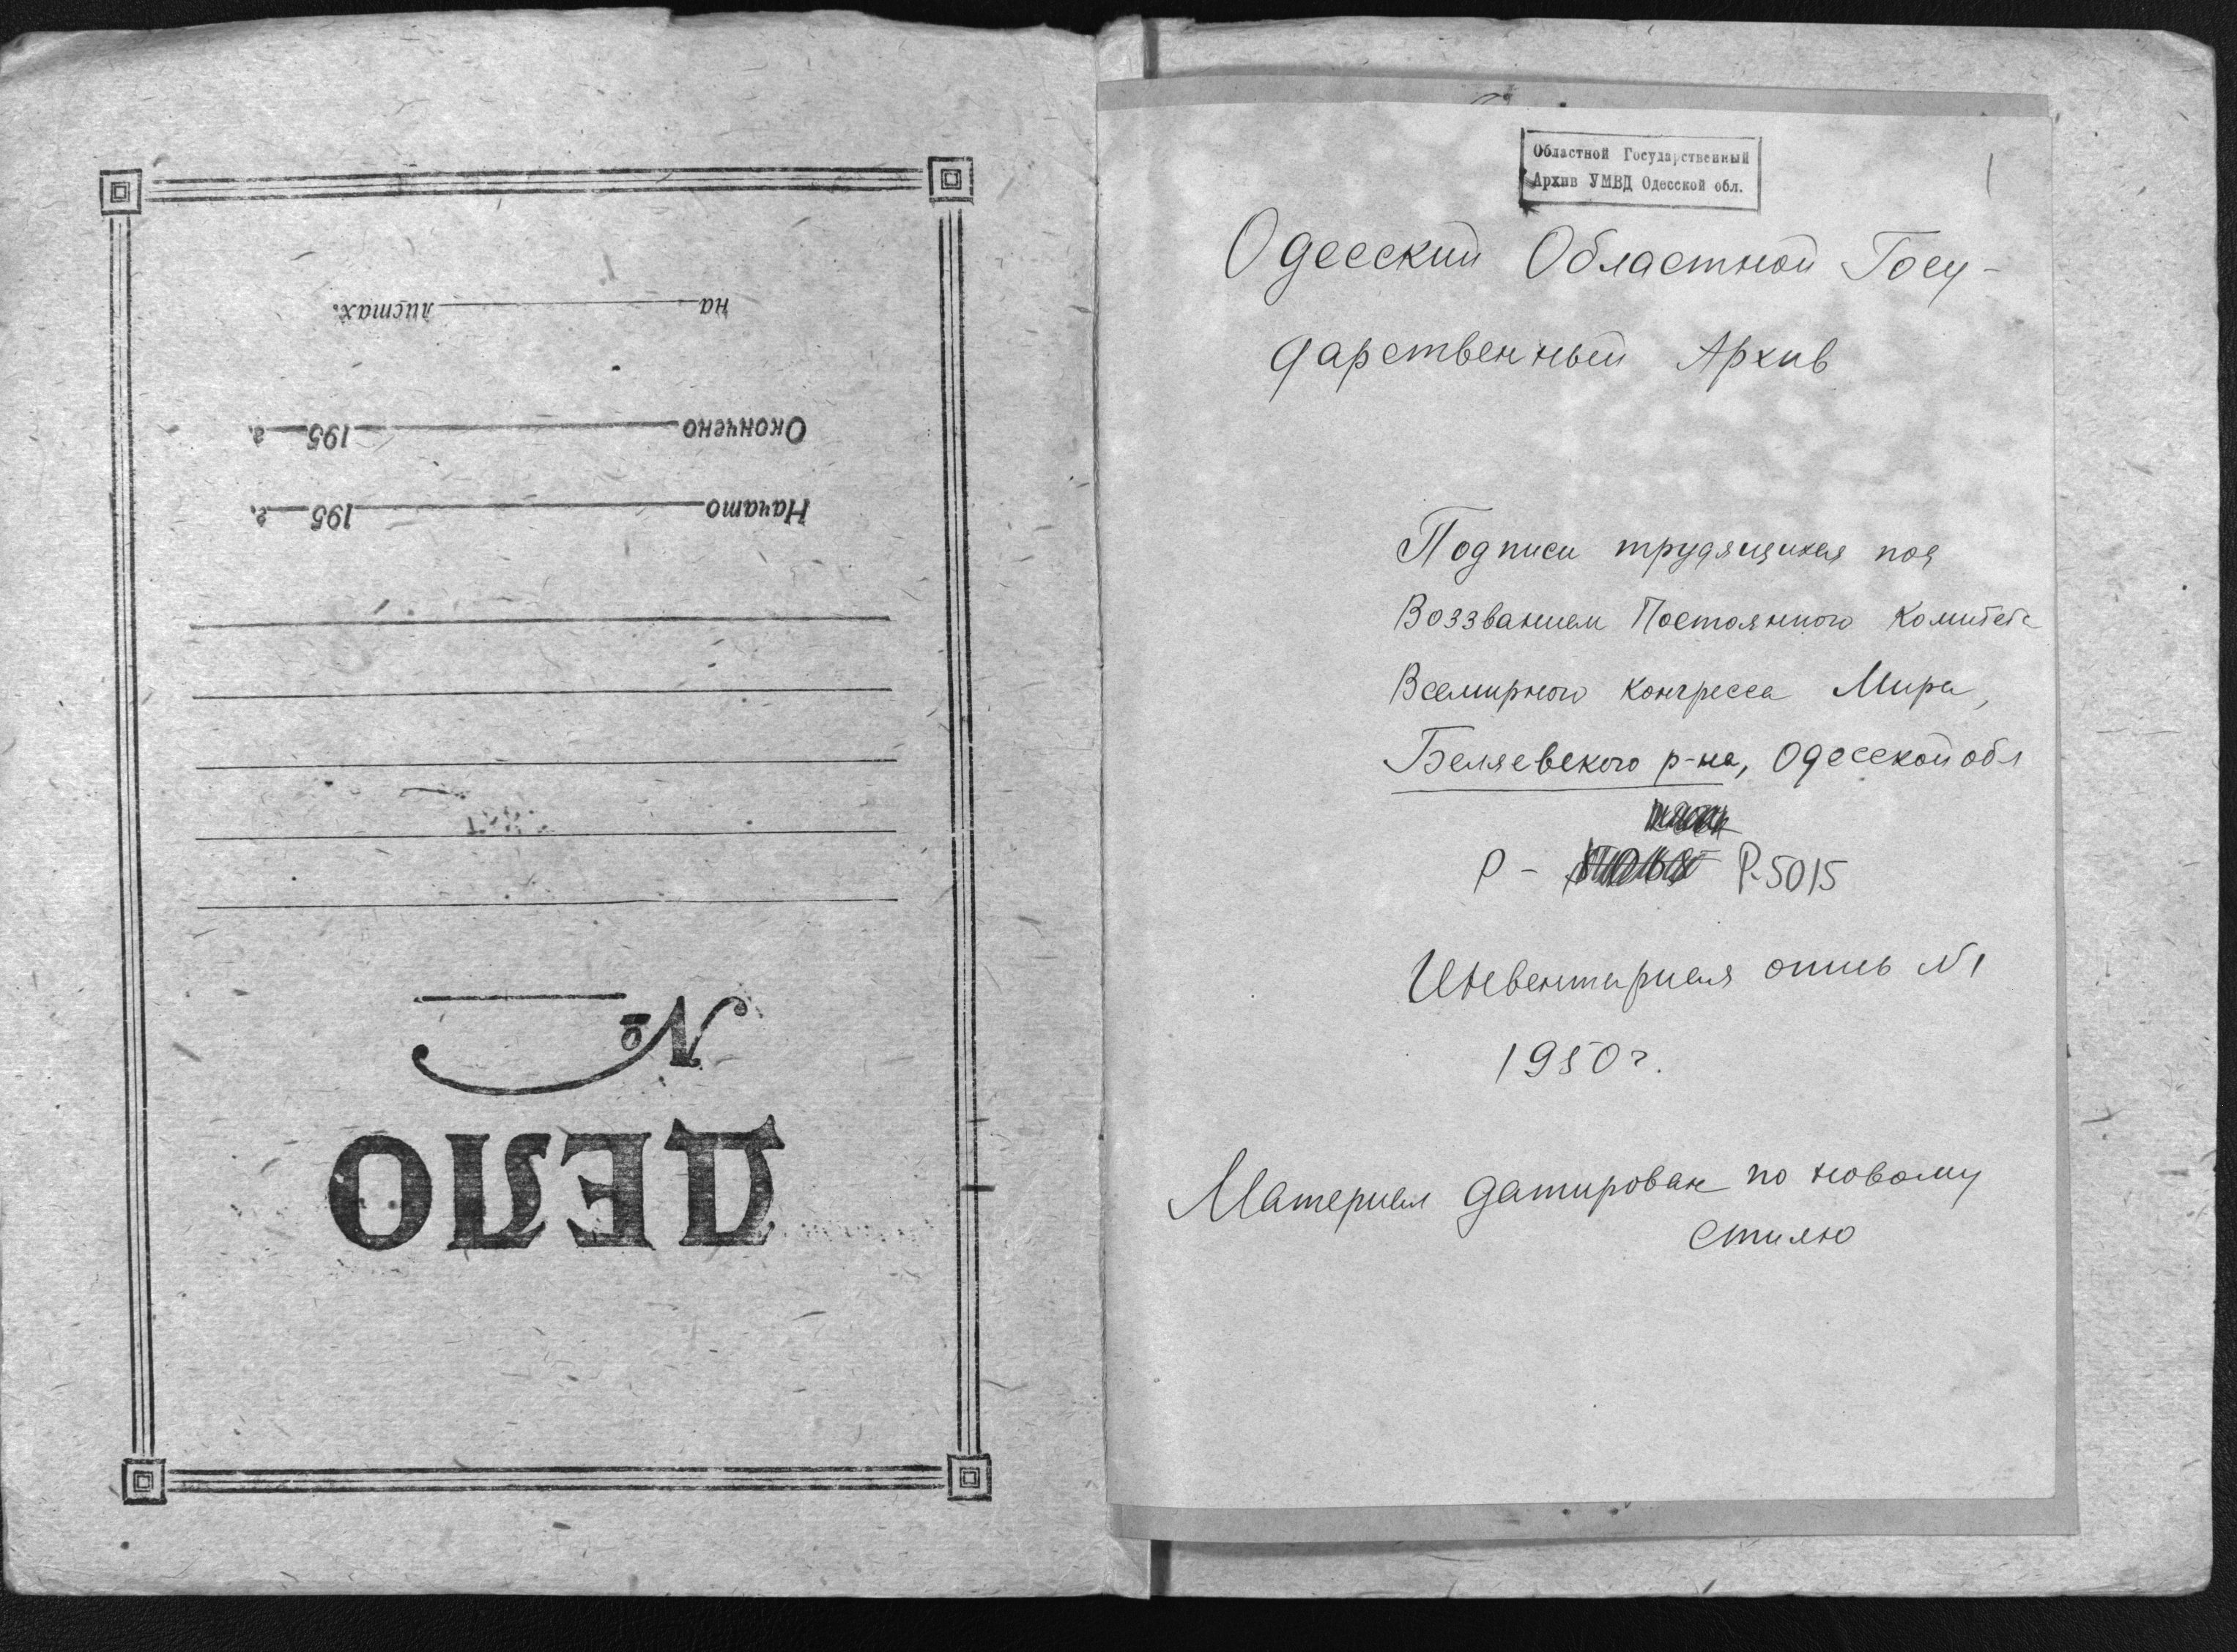 ДЕЛО
№
Начато 195 г.
Окончено 195 г.
на листах.
Областной Государственный
Архив УМВД Одесской обл.
1
Одесский Областной Госу-
дарственный Архив
Подписи трудящихся под
Воззванием Постоянного Комитета
Всемирного Конгресса Мира,
Беляевского р-на, Одесской обл
Р - Р-5015
Инвентарная опись №1
1950 г.
Материал датирован по новому
стилю